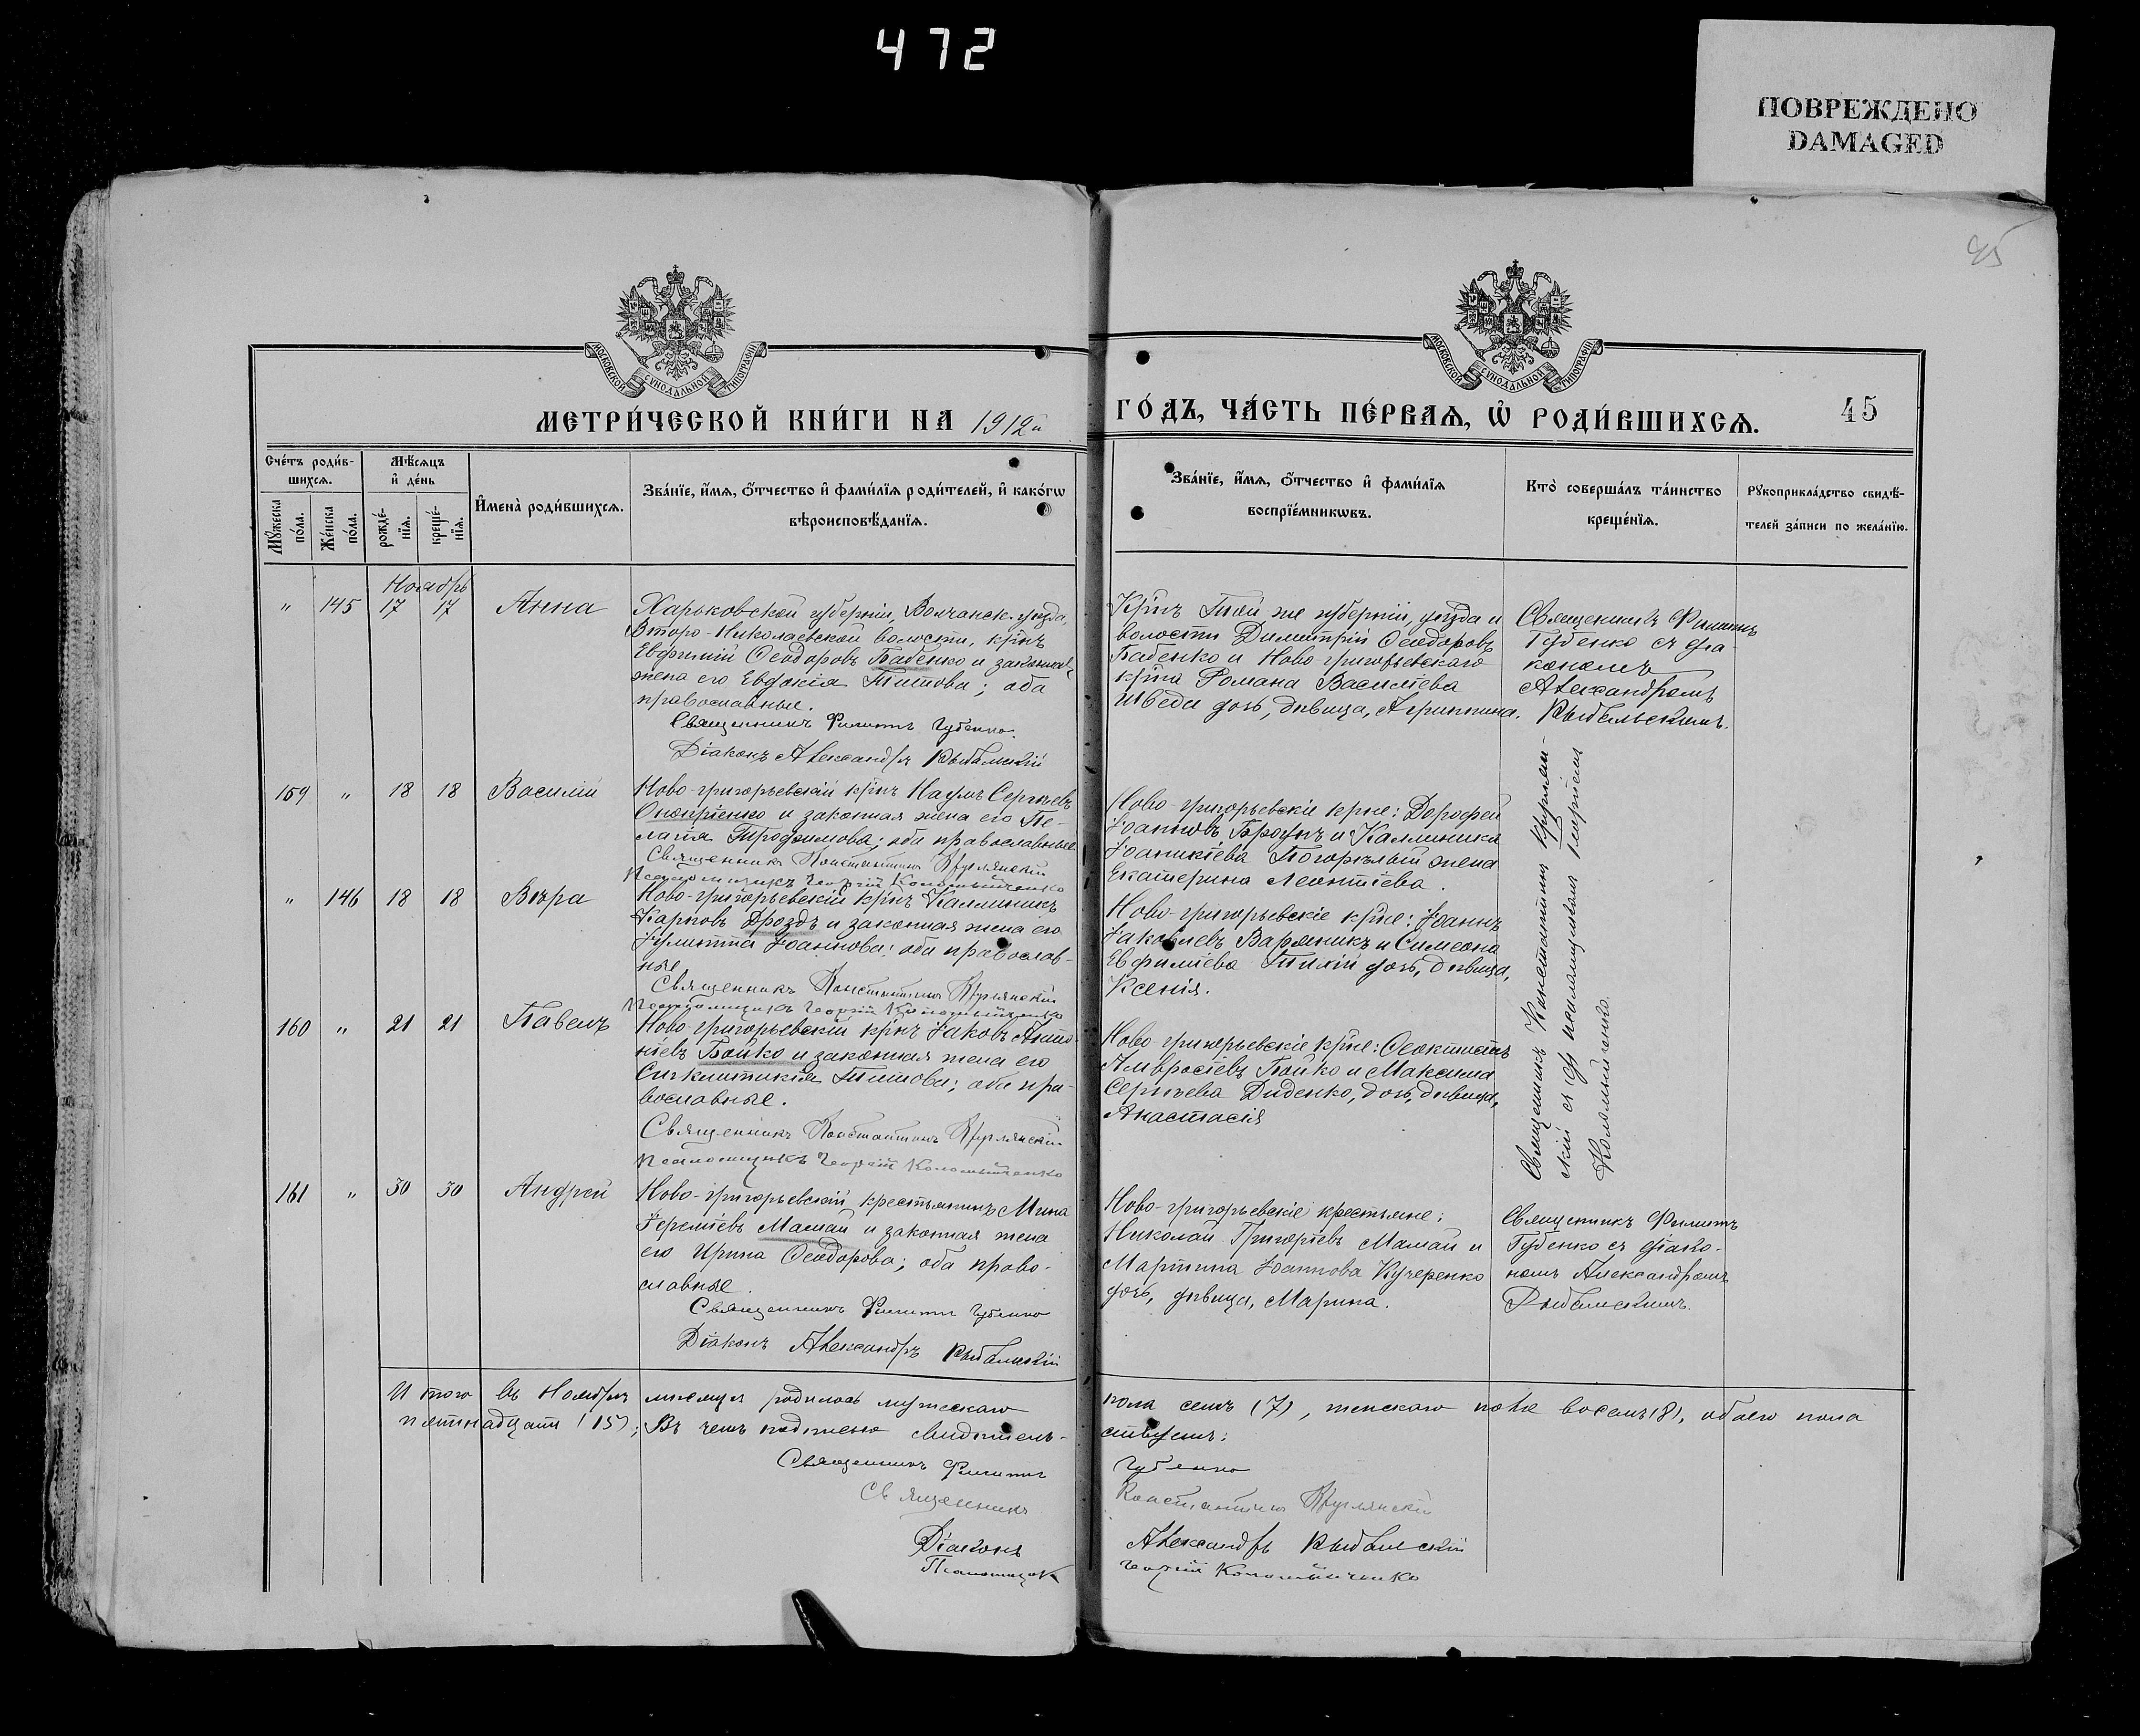 472
ПОВРЕЖДЕНО
DAMAGED
45
МОСКОВСКОЙ СУНОДАЛЬНОЙ ТИПОГРАФІИ
МОСКОВСКОЙ СУНОДАЛЬНОЙ ТИПОГРАФІИ
МЕТРИ́ЧЕСКОЙ КНИ́ГИ НА 1912й
ГО́ДЪ, ЧА́СТЬ ПЕ́РВАѦ, Ѽ РОДИ́ВШИХСѦ. 45
Сче́тъ роди́в-
шихсѧ.
Мѣ́сѧцъ
и҆ де́нь
Му́жеска
по́ла.
Же́нска
по́ла.
рожде́-
нїѧ.
креще́-
нїѧ.
И҆мена̀ роди́вшихсѧ.
Зва́нїе, и҆́мѧ, ѻ҆́тчество и҆ фами́лїѧ роди́телей, и҆ како́гѡ
вѣроисповѣ́данїѧ.
Зва́нїе, и҆́мѧ, ѻ҆́тчество и҆ фами́лїѧ
воспрїе́мникѡвъ.
Кто̀ соверша́лъ та́инство
креще́нїѧ.
Рꙋкоприкла́дство свидѣ́-
телей за́писи по жела́нїю.
Ноябрь
" 145 17 17 Анна
Харьковской губерніи, Волчанск. уѣзда,
Второ-Николаевской волости, кр̃нъ
Евфимій Ѳеодоровъ Бабенко и законная
жена его Евдокія Титова; оба
православные.
Священникъ Филиппъ Губенко.
Діаконъ Александръ Рыбальскій
Кр̃нъ той же губерніи, уѣзда и
волости Димитрій Ѳеодоровъ
Бабенко и Ново-григорьевскаго
кр̃на Романа Василіева
Шведа дочь, дѣвица, Агриппина.
Священникъ Филиппъ
Губенко съ діа-
кономъ
Александромъ
Рыбальскимъ.
159 " 18 18 Василій
Ново-григорьевскій кр̃нъ Наумъ Сергѣевъ
Онопріенко и законная жена его Пе-
лагія Трофимова; оба православные
Священникъ Константинъ Круглянскій
Псаломщикъ Георгій Коломыйченко
Ново-григорьевскіе кр̃не: Дорофей
Іоанновъ Бродунъ и Каллиника
Іоаникіева Погорѣлый жена
Екатерина Леонтіева.
" 146 18 18 Вѣра
Ново-григорьевскій кр̃нъ Каллиникъ
Карповъ Дроздъ и законная жена его
Іулитта Іоаннова; оба православ-
ные
Священникъ Константинъ Круглянскій
Псаломщикъ Георгій Коломыйченко
Ново-григорьевскіе кр̃не: Іоаннъ
Іаковлевъ Вареникъ и Симеона
Евфиміева Тихій дочь, дѣвица,
Ксенія.
160 " 21 21 Павелъ
Ново-григорьевскій кр̃нъ Іаковъ Анто-
ніевъ Бойко и законная жена его
Синклитикія Титова; оба пра-
вославные.
Священникъ Константинъ Круглянскій
Псаломщикъ Георгій Коломыйченко
Ново-григорьевскіе кр̃не: Ѳеоктистъ
Амвросіевъ Бойко и Максима
Сергѣева Диденко, дочь, дѣвица,
Анастасія
Священникъ Константинъ Круглян-
скій съ псаломщикомъ Георгіемъ
Коломыйченко.
161 " 30 30 Андрей
Ново-григорьевскій крестьянинъ Мина
Іереміевъ Мамай и законная жена
его Ирина Ѳеодорова; оба право-
славные.
Священникъ Филиппъ Губенко
Діаконъ Александръ Рыбальскій
Ново-григорьевскіе крестьяне:
Николай Григоріевъ Мамай и
Мартина Іоаннова Кучеренко
дочь, дѣвица, Марина.
Священникъ Филиппъ
Губенко съ діако-
номъ Александромъ
Рыбальскимъ.
Итого въ Ноябрѣ мѣсяцѣ родилось мужескаго пола семь (7), женскаго пола восемь (8), обоего пола
пятнадцать (15); Въ чемъ подписью свидѣтель-ствуемъ:
Священникъ Филиппъ Губенко
Священникъ Константинъ Круглянскій
Діаконъ Александръ Рыбальскій
Псаломщикъ Георгій Коломыйченко